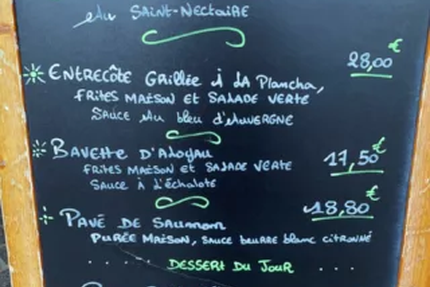 au SAINT-NECTAIRE
28,00 €
ENTRECÔTE GRILLÉE À LA Plancha,
FRITES MAISON ET SALADE VERTE
SAUCE AU bleu d'AUVERGNE
BAVETTE D'ALOYAU 17,50 €
FRITES MAISON ET SALADE VERTE
SAUCE À L'ÉCHALOTE
18,80 €
PAVÉ DE SAUMON
PURÉE MAISON, SAUCE beurre blanc CITRONNÉ
..... DESSERT DU JOUR ....